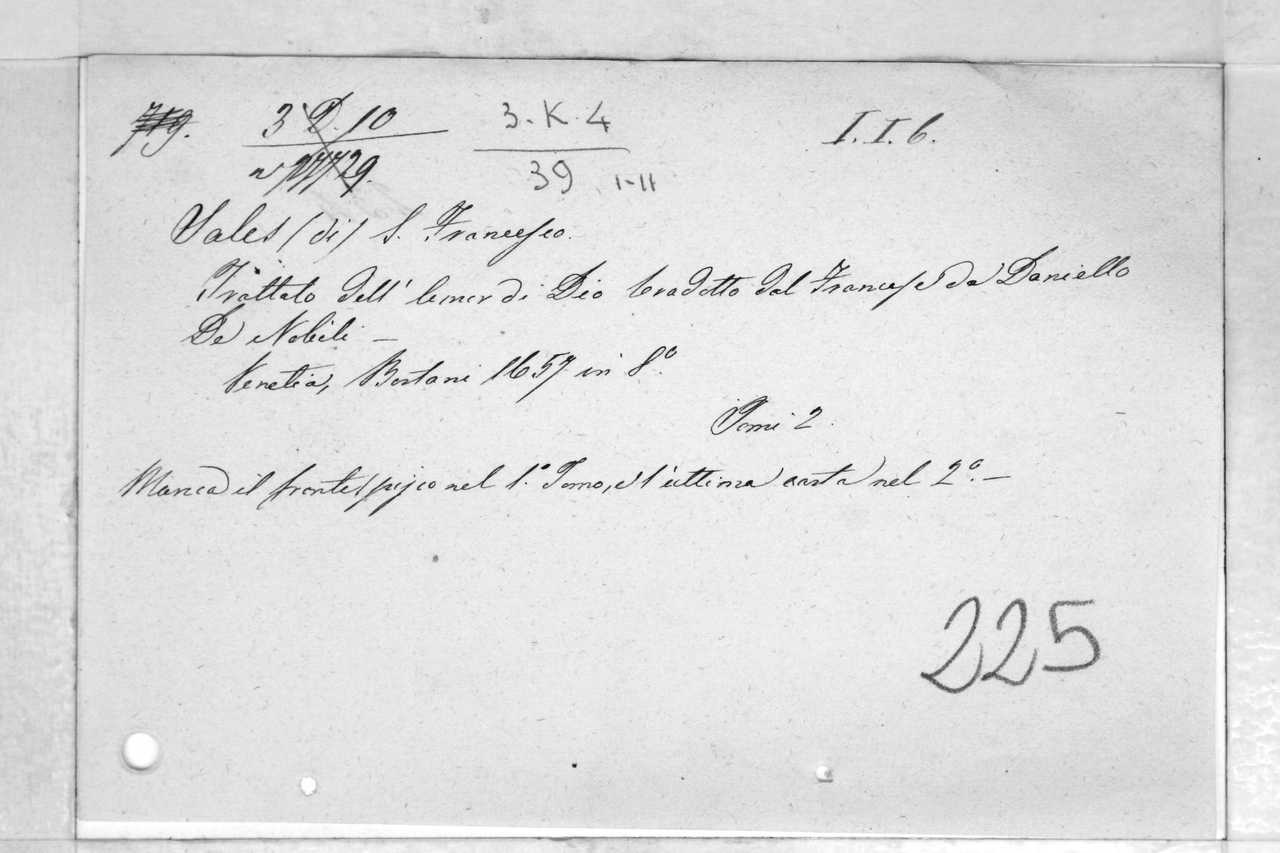 3 D. 10   3. K. 4   I. I. 6.
39 I-II
Sales (di) S. Francesco.
Trattato dell' Amor di Dio tradotto dal Francese da Daniello
De Nobili —
Venetia, Bertani 1657 in 8°.
Tomi 2.
Manca il frontespizio nel 1.° Tomo, e l'ultima carta nel 2.° —
225